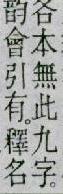 各本無此九字。
韵會引有。釋名